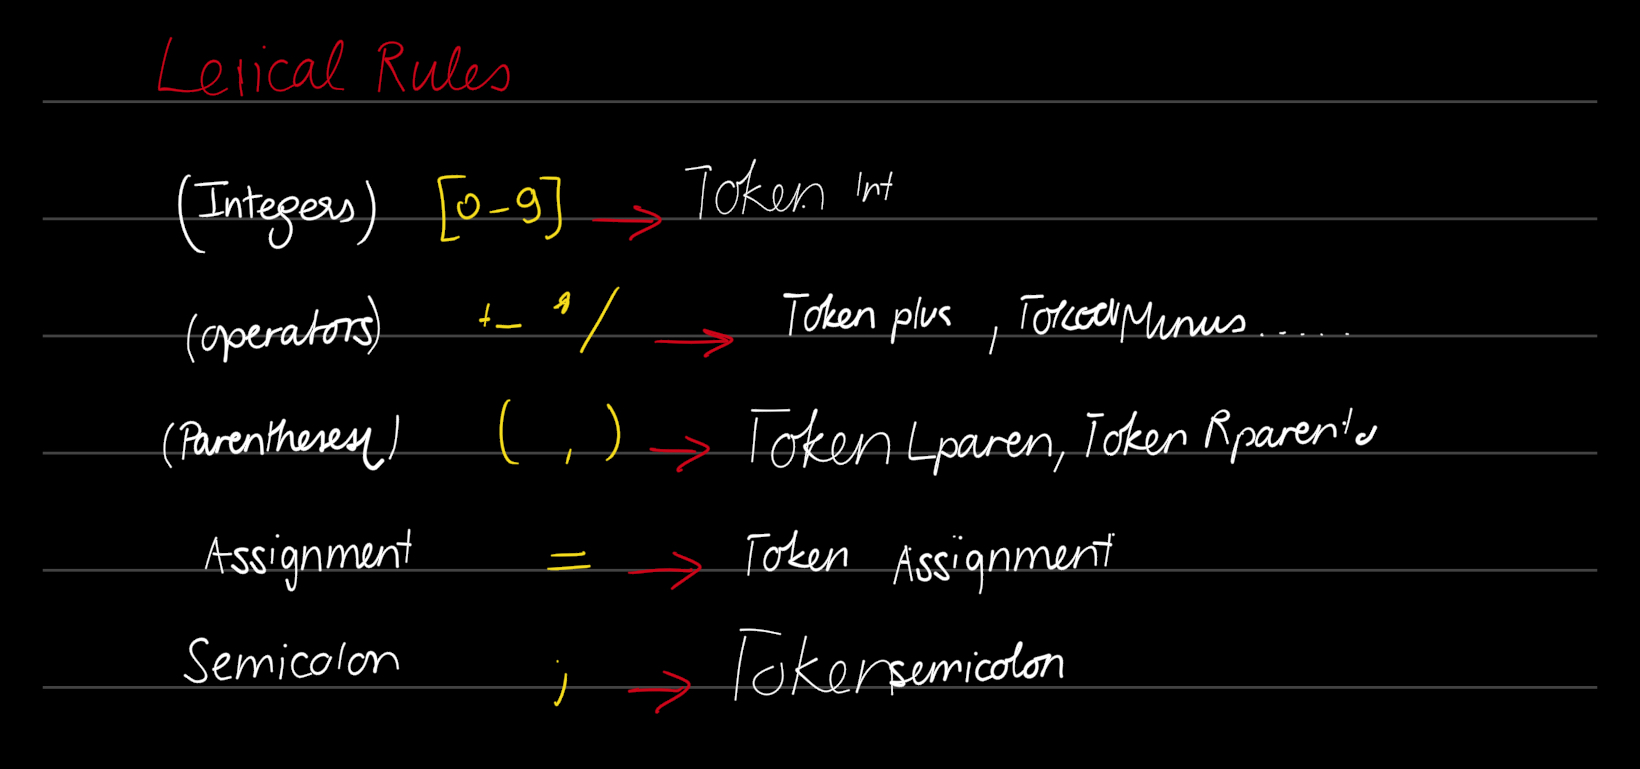 Lexical Rules
(Integers) [0-9] → Token Int
(operators) + - * / → Token plus , Minus.....
(Parentheses) ( , ) → Token Lparen, Token Rparen
Assignment = → Token Assignment
Semicolon ; → Token semicolon